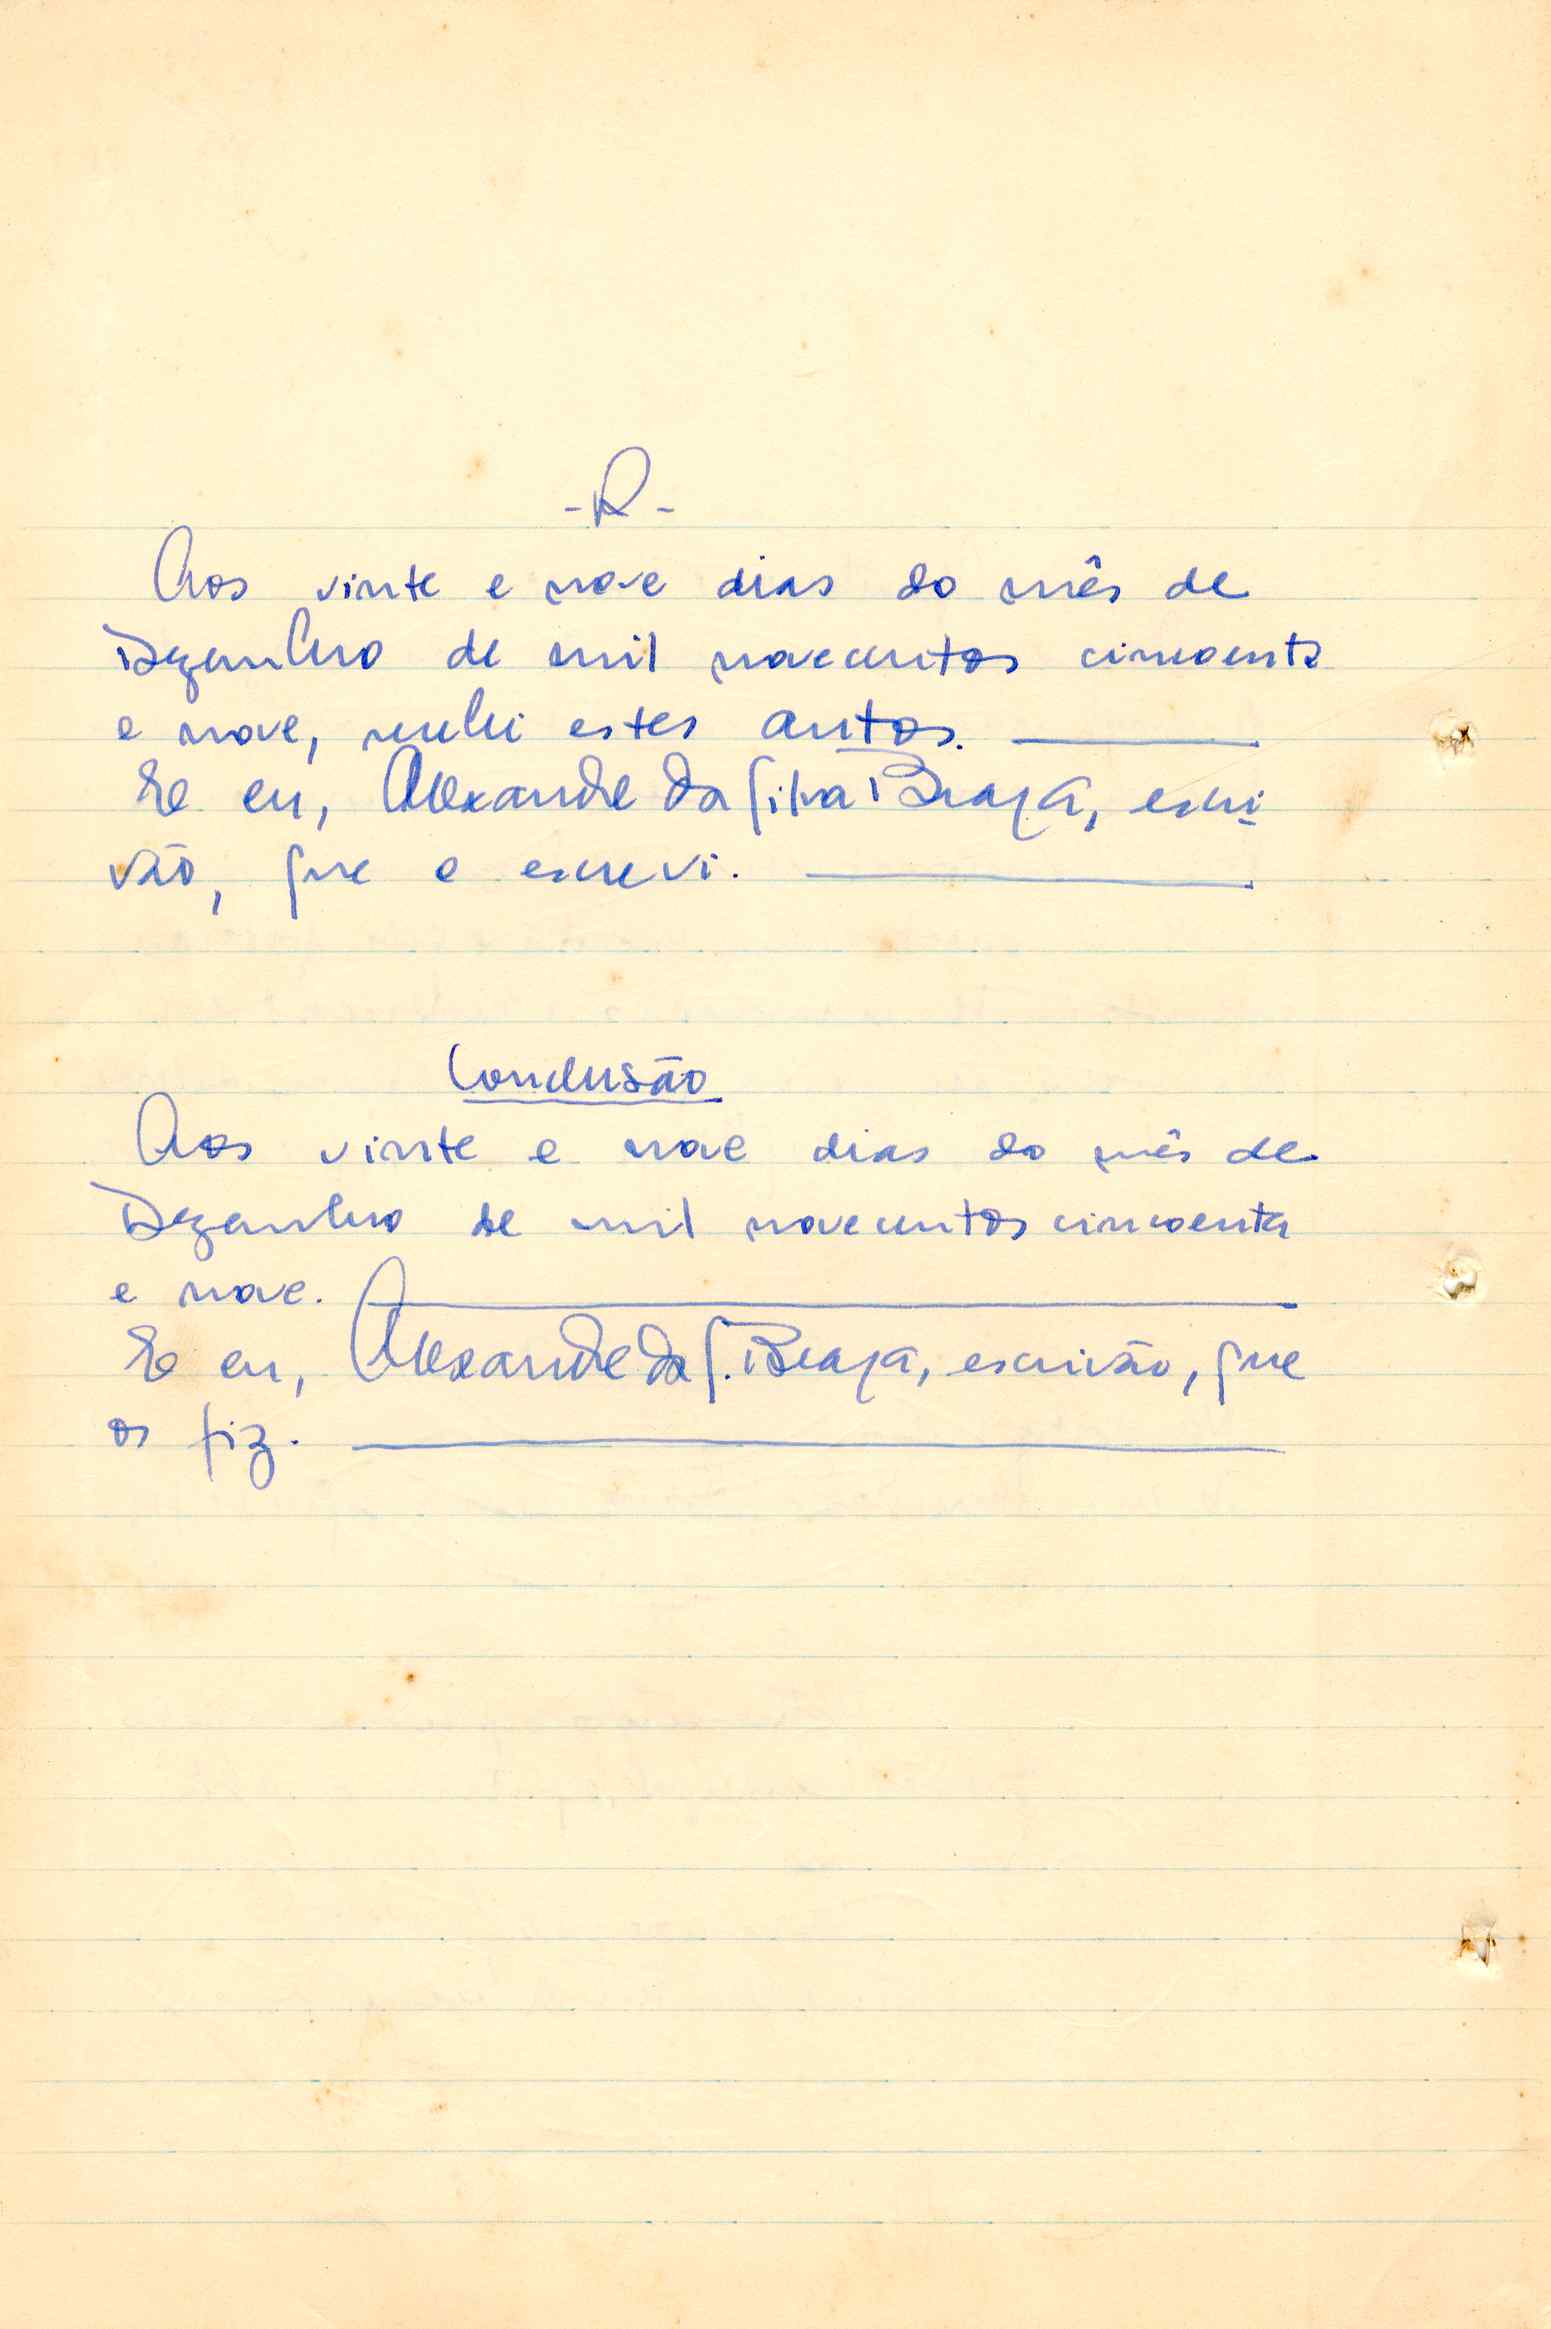 - R -
Aos vinte e nove dias do mês de
Dezembro de mil novecentos cincoenta
e nove, recebi estes autos.
E eu, Alexandre da Silva Braga, escri-
vão, que o escrevi.
Conclusão
Aos vinte e nove dias do mês de
Dezembro de mil novecentos cincoenta
e nove.
E eu, Alexandre da S. Braga, escrivão, que
os fiz.